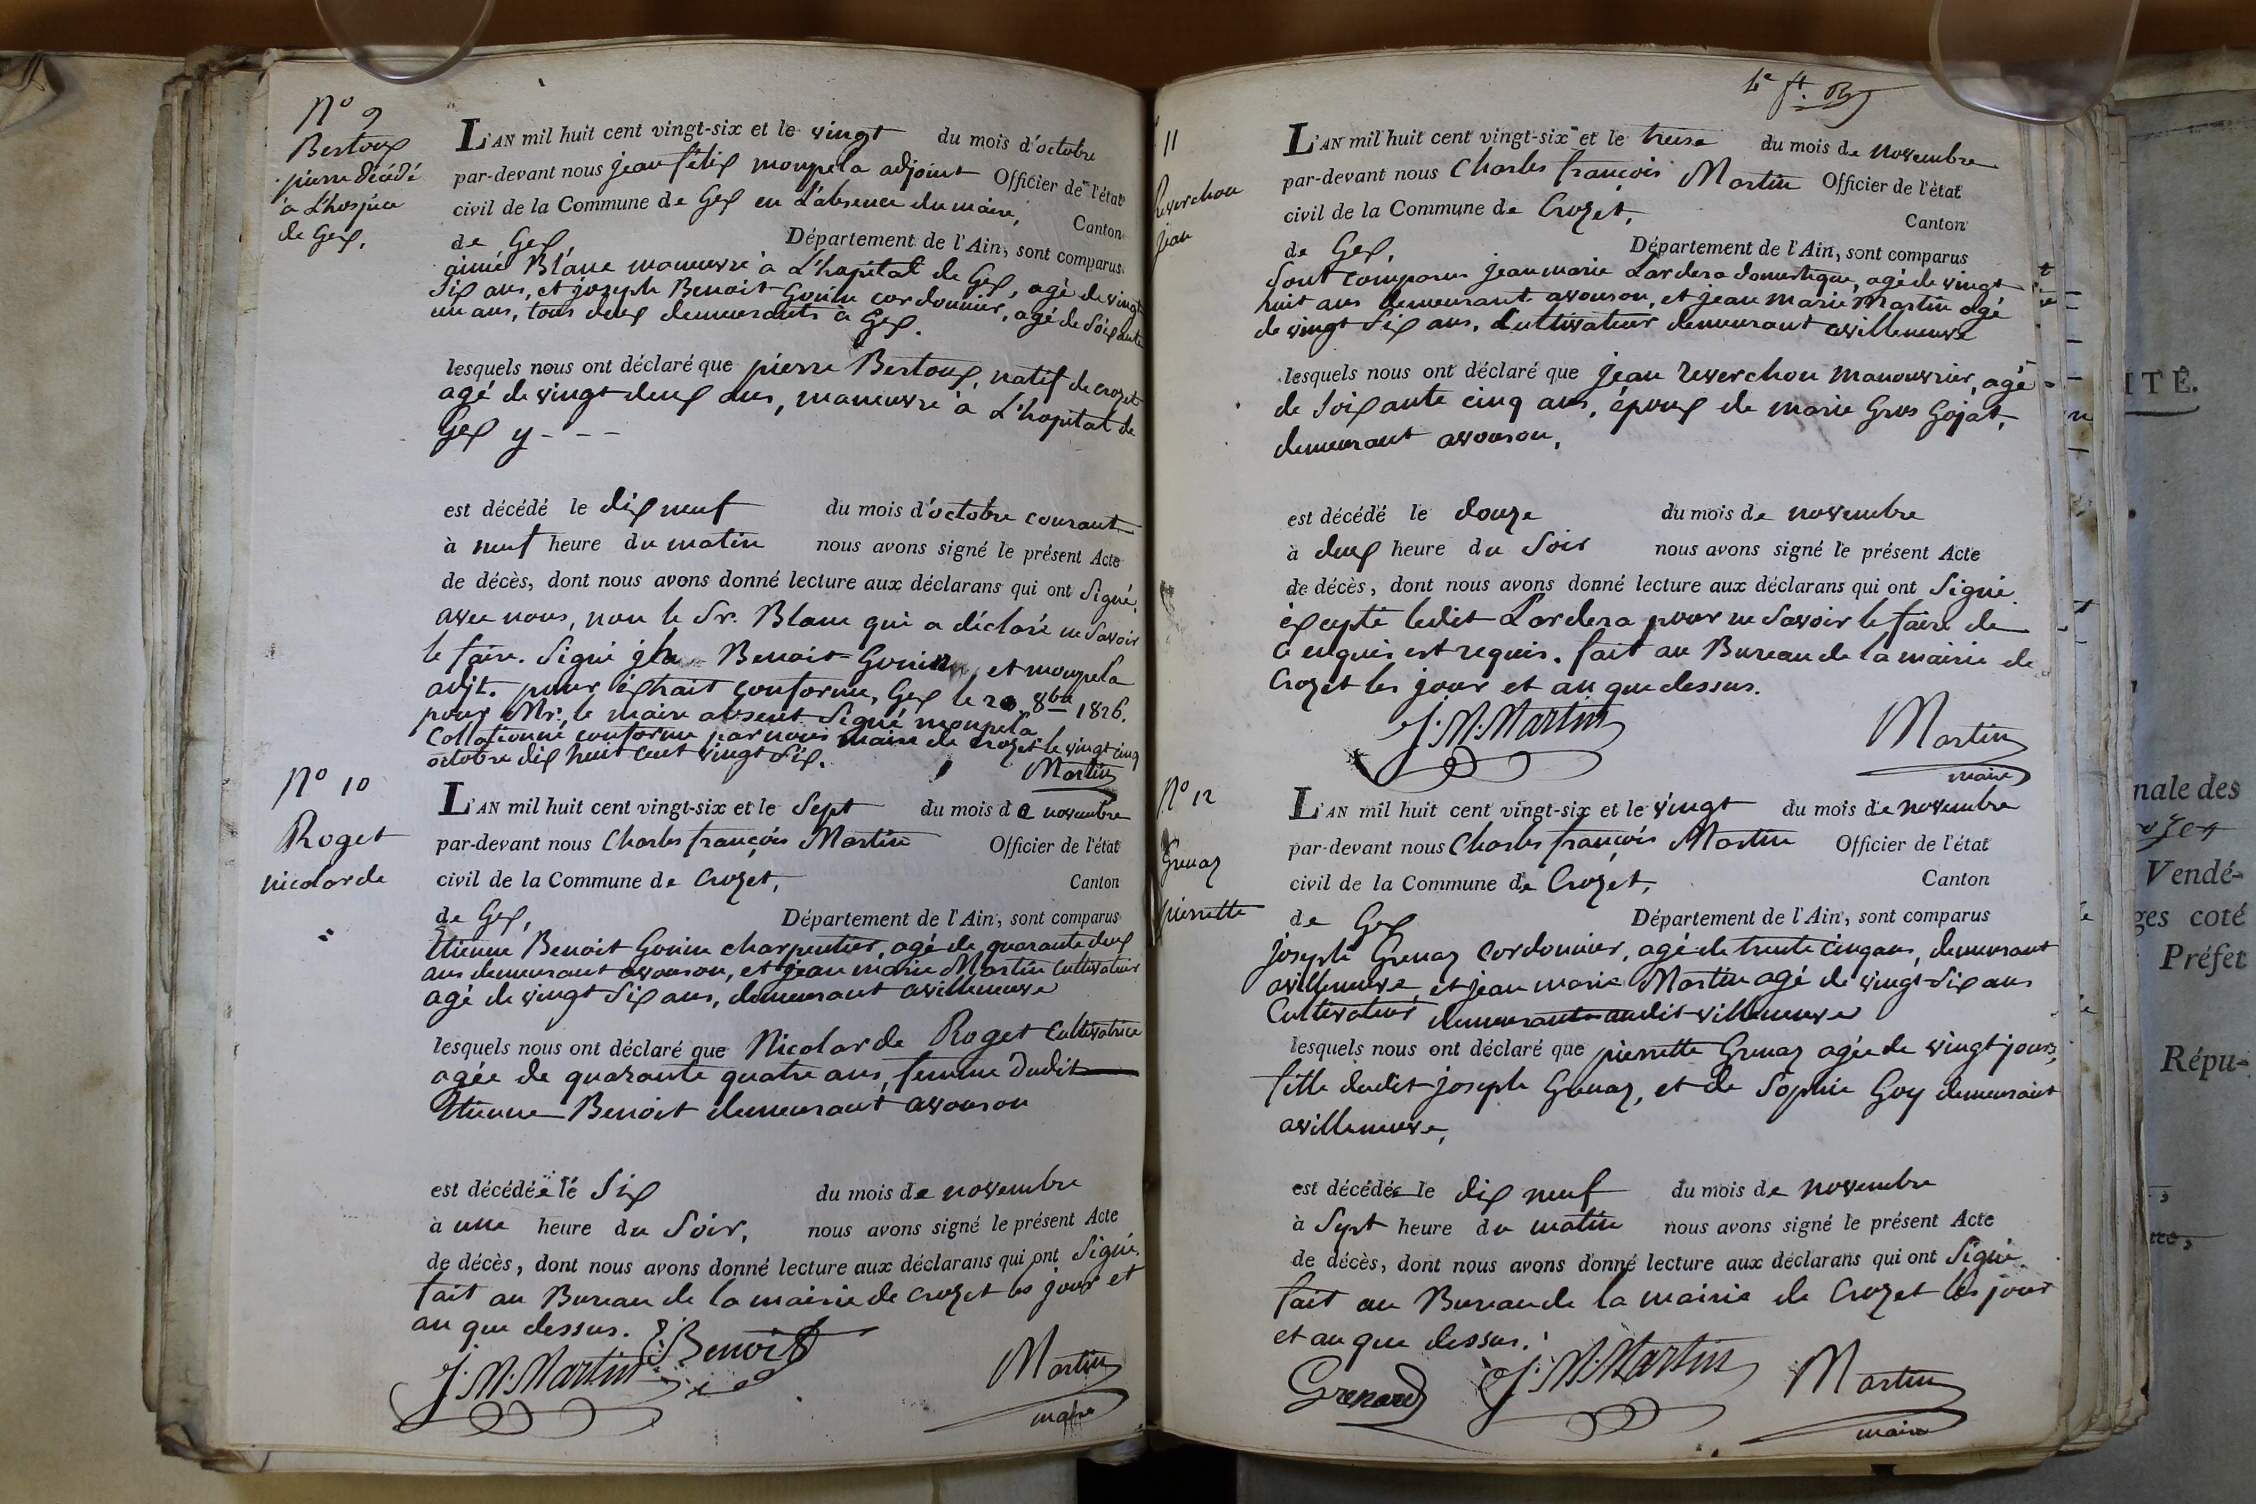 N.º 9
Bertoux
pierre décédé
à L'hospice
de Gex.
L'AN mil huit cent vingt-six et le vingt du mois d'octobre
par-devant nous jean félix moupela adjoint Officier de l'état
civil de la Commune de Gex en L'absence du maire, Canton
de Gex, Département de l'Ain, sont comparus
aimé Blanc maneuvre à L'hopital de Gex, agé de vingt
six ans, et joseph Benoit Gonin cordonnier, agé de soixante
un ans, tous deux demeurants à Gex.
lesquels nous ont déclaré que pierre Bertoux, natif de crozet
agé de vingt deux ans, maneuvre à L'hopital de
Gex y - - -
est décédé le dix neuf du mois d'octobre courant
à neuf heure du matin nous avons signé le présent Acte
de décès, dont nous avons donné lecture aux déclarans qui ont signé.
avec nous, non le Sr. Blanc qui a déclaré ne savoir
le faire. Signé jh Benoit Gonin, et moupela
adjt. pour extrait conforme, Gex le 20 8bre 1826.
pour Mr. le maire absent signé moupela
Collationné conforme par nous maire de crozet le vingt cinq
octobre dix huit cent vingt six.
Martin
N.º 10
Roget
nicolarde
L'AN mil huit cent vingt-six et le sept du mois de novembre
par-devant nous Charles françois Martin Officier de l'état
civil de la Commune de Crozet, Canton
de Gex, Département de l'Ain, sont comparus
Etienne Benoit Gonin charpentier, agé de quarante deux
ans demeurant avouson, et jean marie Martin Cultivateur
agé de vingt six ans, demeurant avilleneuve
lesquels nous ont déclaré que Nicolarde Roget Cultivatrice
agée de quarante quatre ans, femme dudit
Etienne Benoit demeurant avouson
est décédée le six du mois de novembre
à une heure du soir, nous avons signé le présent Acte
de décès, dont nous avons donné lecture aux déclarans qui ont signé.
fait au Bureau de la mairie de crozet les jour et
an que dessus. E. Benoit
J. M. Martin
Martin
maire
11
Reverchon
jean
L'AN mil huit cent vingt-six et le treise du mois de novembre
par-devant nous Charles françois Martin Officier de l'état
civil de la Commune de Crozet, Canton
de Gex, Département de l'Ain, sont comparus
Sont comparus jean marie Lardera domestique, agé de vingt
huit ans demeurant avouson, et jean marie Martin agé
de vingt six ans, Cultivateur demeurant avilleneuve
lesquels nous ont déclaré que jean reverchon manouvrier, agé
de soixante cinq ans, époux de marie Gros Gojat,
demeurant avouson,
est décédé le douze du mois de novembre
à deux heure du soir nous avons signé le présent Acte
de décès, dont nous avons donné lecture aux déclarans qui ont signé.
excepté ledit Lardera pour ne savoir le faire de
ce enquis est requis. fait au Bureau de la mairie de
Crozet les jour et an que dessus.
J. M. Martin
Martin
maire
N.º 12
Grenaz
pierrette
L'AN mil huit cent vingt-six et le vingt du mois de novembre
par-devant nous Charles françois Martin Officier de l'état
civil de la Commune de Crozet, Canton
de Gex Département de l'Ain, sont comparus
joseph Grenaz cordonnier, agé de trente cinq ans, demeurant
avilleneuve et jean marie Martin agé de vingt six ans
Cultivateur demeurant audit villeneuve
lesquels nous ont déclaré que pierrette Grenaz agée de vingt jours,
fille dudit joseph Grenaz, et de Sophie Goy demeurant
avilleneuve,
est décédée le dix neuf du mois de novembre
à sept heure du matin nous avons signé le présent Acte
de décès, dont nous avons donné lecture aux déclarans qui ont signé.
fait au Bureau de la mairie de Crozet les jour
et an que dessus.
Grenard J. M. Martin Martin
maire
ITÉ.
nale des
Vendé-
ges coté
Préfet
Répu-